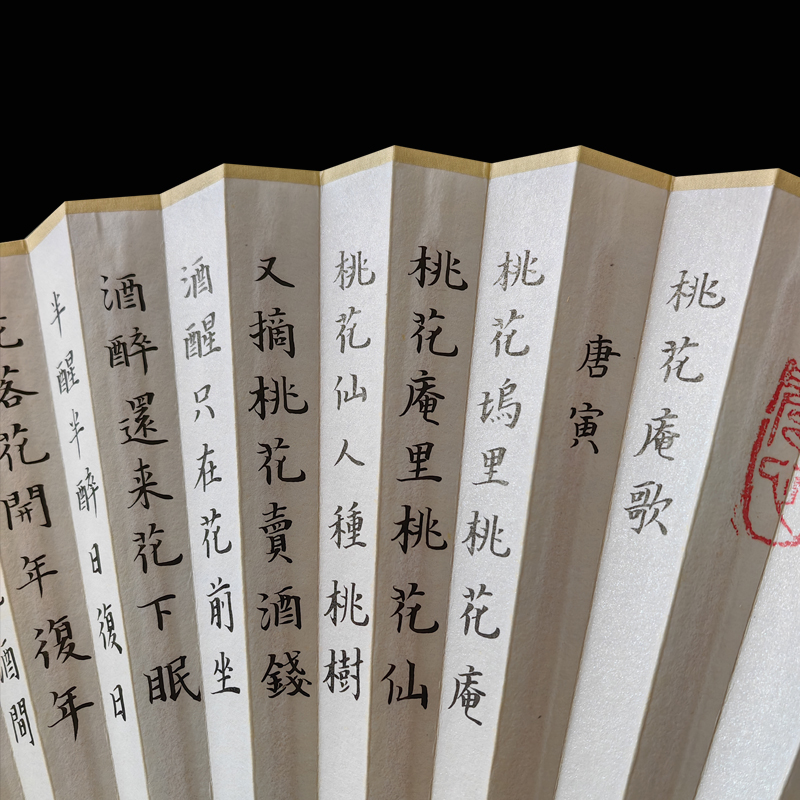 桃花庵歌
唐寅
桃花塢里桃花庵
桃花庵里桃花仙
桃花仙人種桃樹
又摘桃花賣酒錢
酒醒只在花前坐
酒醉還来花下眠
半醒半醉日復日
花落花開年復年
酒間